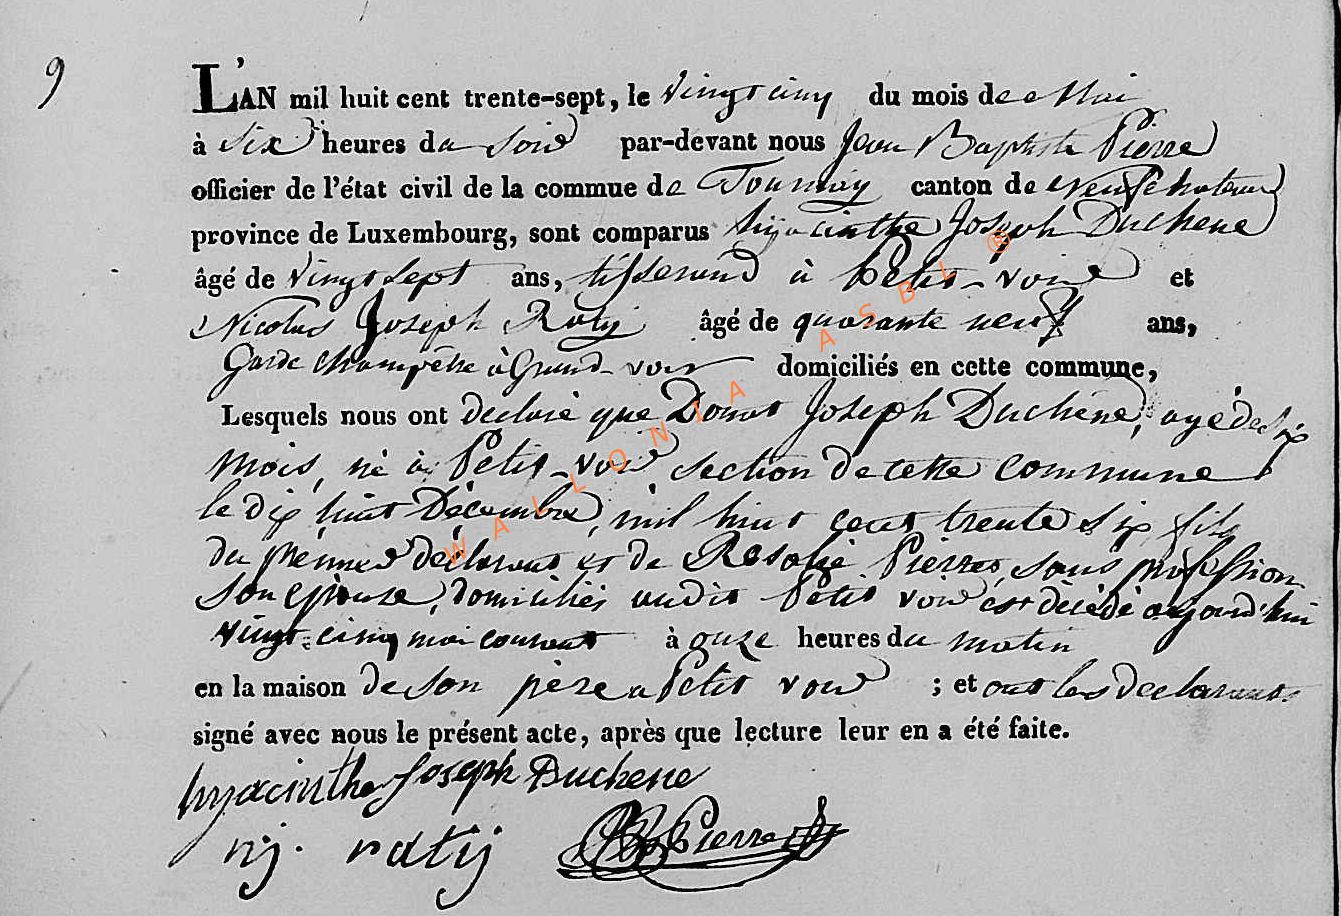 9
L'AN mil huit cent trente-sept, le vingt cinq du mois de Mai
à six heures du soir par-devant nous Jean Baptiste Pierre
officier de l'état civil de la commue de Tournay canton de Neufchateau
province de Luxembourg, sont comparus hyacinthe Joseph Duchene
âgé de vingt sept ans, tisserand à Petit-voir et
Nicolas Joseph Raty âgé de quarante neuf ans,
Garde champêtre à Grand-voir domiciliés en cette commune,
Lesquels nous ont declaré que Donat Joseph Duchéne, agé de six
mois, né à Petit-voir section de cette commune
le dix huit Décembre, mil huit cent trente six fils
du prémier déclarant et de Rosalie Pierret, sans profession
son epouse, domiciliés audit Petit voir est décédé aujourd'hui
vingt-cinq mai courant à onze heures du matin
en la maison de son père a Petit voir ; et ont les declarants
signé avec nous le présent acte, après que lecture leur en a été faite.
hyacinthe Joseph Duchene
n.j. raty JB Pierre
WALLONIA ASBL ®